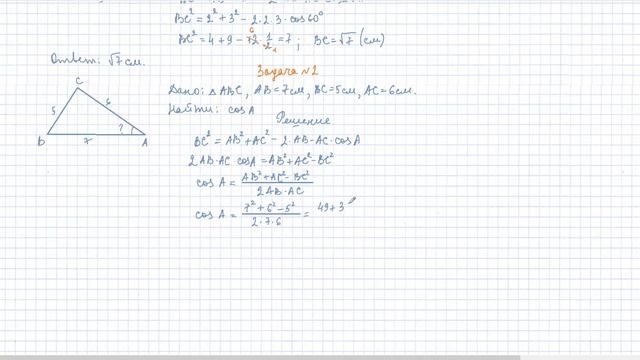 BC² = 2² + 3² - 2·2·3·cos60°
BC² = 4 + 9 - 12·1/2 = 7 ; BC = √7 (см)
Ответ: √7 см.
Задача №2
Дано: △ABC, AB = 7см, BC = 5см, AC = 6см.
Найти: cosA
Решение
C
5
6
B
7
?
A
BC² = AB² + AC² - 2·AB·AC·cosA
2AB·AC·cosA = AB² + AC² - BC²
cosA = AB² + AC² - BC² / 2AB·AC
cosA = 7² + 6² - 5² / 2·7·6 = 49 + 3